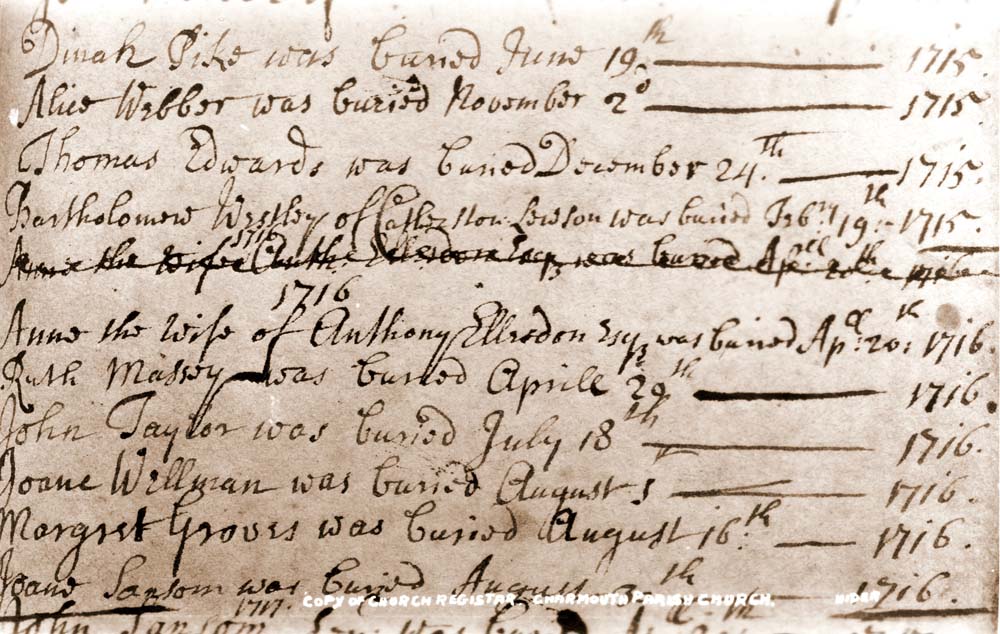 Dinah Pike was buried June 19th 1715.
Alice Webber was buried November 2d 1715
Thomas Edwards was buried December 24.th 1715.
Bartholomew Westley of was buried Feb:ry 19th: 1715.
Anne the wife was buried
1716
Anne the wife of Anthony Ellesdon Esqr was buried Ap:ll 20:th 1716.
Ruth Massey was buried Aprill 29th 1716.
John Taylor was buried July 18th 1716.
Joane Wellman was buried August 1716.
Margret Groves was buried August 16:th 1716.
Joane Sansom was buried August th 1716.
1717.
John Sansom was
COPY OF CHURCH REGISTAR. CHARMOUTH PARISH CHURCH. HIDER